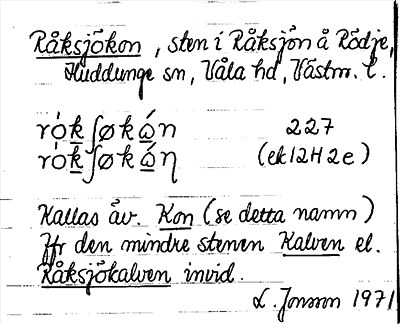 Råksjökon, sten i Råksjön å Rödje,
Huddunge sn, Våla hd, Västm. l.
rȯk̲ʃøkòn 227
rȯk̲ʃøkòŋ (ek 12H2e)
Kallas äv. Kon (se detta namn)
Jfr den mindre stenen Kalven el.
Råksjökalven invid.
L. Jonsson 1971